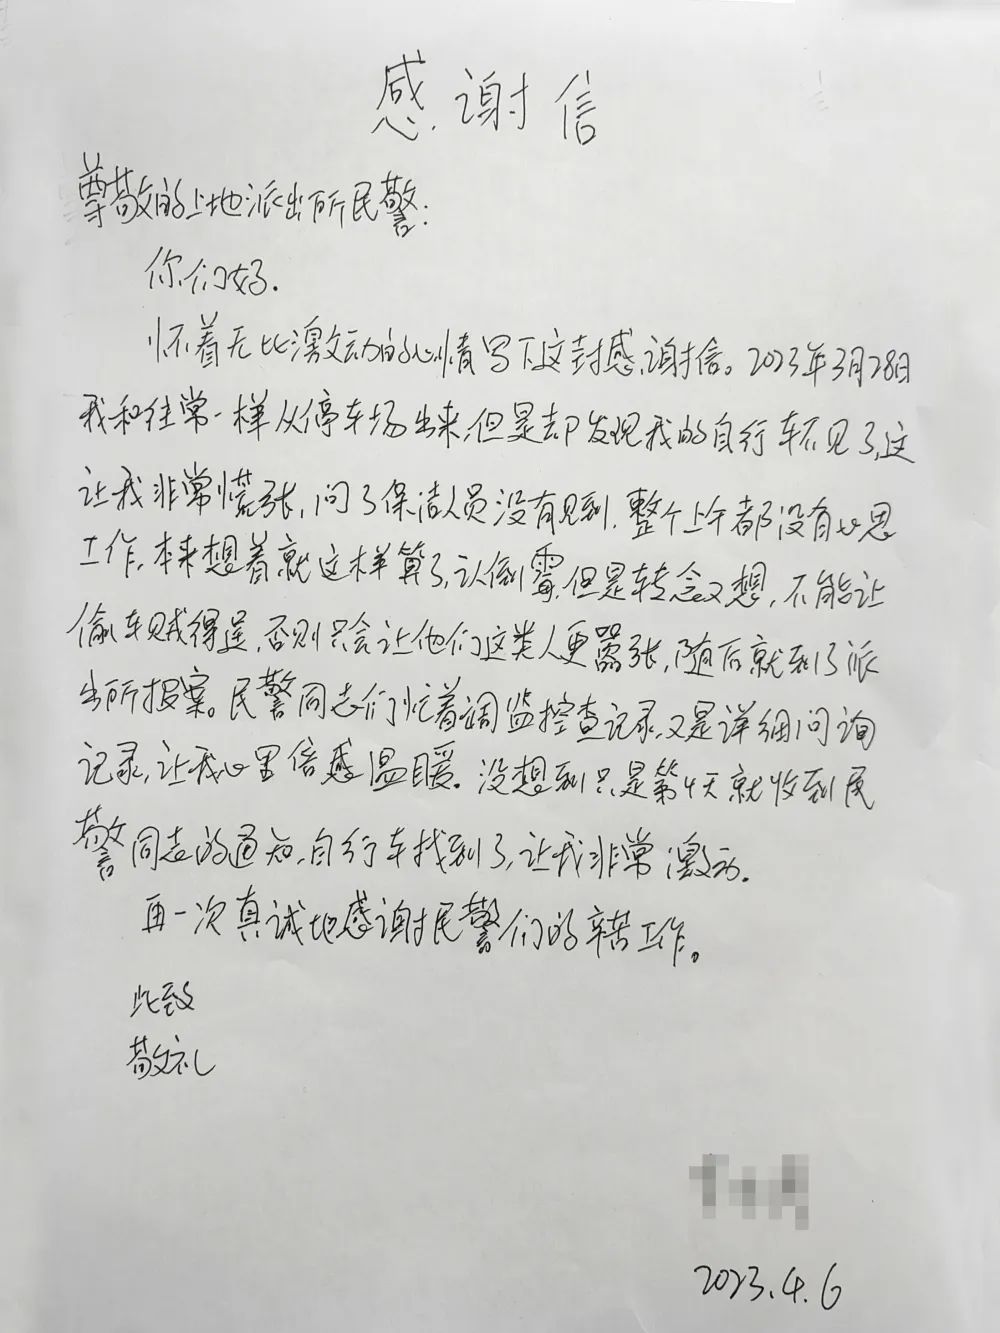 感谢信
尊敬的上地派出所民警:
你们好.
怀着无比激动的心情写下这封感谢信。2023年3月28日
我和往常一样从停车场出来,但是却发现我的自行车不见了,这
让我非常慌张,问了保洁人员没有见到.整个上午都没有心思
工作,本来想着就这样算了,认倒霉,但是转念又想,不能让
偷车贼得逞,否则只会让他们这类人更嚣张,随后就到了派
出所报案。民警同志们忙着调监控查记录,又是详细问询
记录,让我心里倍感温暖.没想到只是第4天就收到民
警同志的通知,自行车找到了,让我非常激动.
再一次真诚地感谢民警们的辛苦工作。
此致
敬礼
2023.4.6